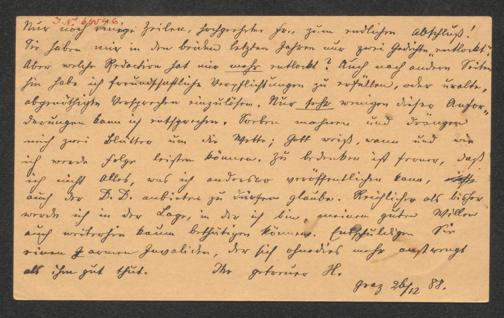 J. N. 61516.
Nur noch wenige Zeilen, hochgeehrter Hr., zum endlichen Abschluß!
Sie haben mir in den beiden letzten Jahren nur zwei Gedichte „entlockt“.
Aber welche Redaction hat mir mehr entlockt? Auch nach andern Seiten
hin habe ich freundschaftliche Verpflichtungen zu erfüllen, oder uralte,
abgenöthigte Versprechen einzulösen. Nur sehr wenigen dieser Anfor-
derungen kann ich entsprechen. Soeben mahnen und drängen
mich zwei Blätter um die Wette; Gott weiß, wann und wie
ich werde Folge leisten können. Zu bedenken ist ferner, daß
ich nicht Alles, was ich anderswo veröffentlichen kann,
auch der D. D. anbieten zu dürfen glaube. Reichlicher als bisher
werde ich in der Lage, in der ich bin, meinen guten Willen
auch weiterhin kaum bethätigen können. Entschuldigen Sie
einen armen Invaliden, der sich ohnedies mehr anstrengt
als ihm gut thut. Ihr getreuer H.
Graz 26/12 88.